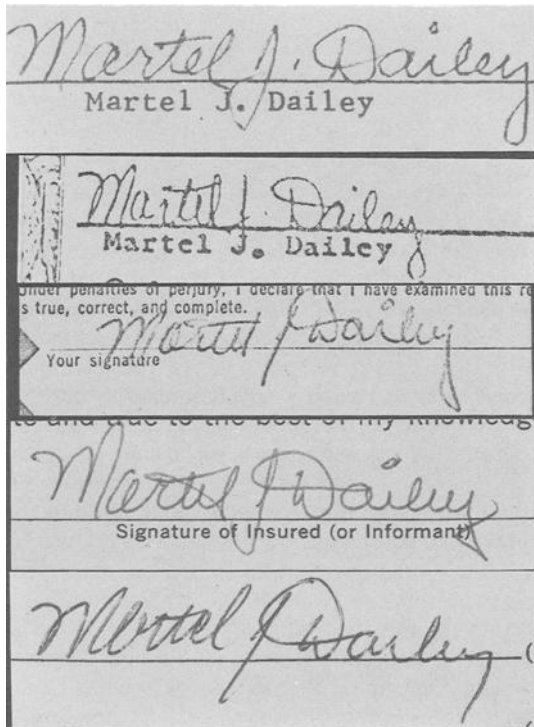 Martel J. Dailey
Martel J. Dailey
Martel J. Dailey
Martel J. Dailey
Under penalties of perjury, I declare that I have examined this re
s true, correct, and complete.
Martel J Dailey
Your signature
te and true to the best of my knowledg
Martel J Dailey
Signature of Insured (or Informant)
Martel J Dailey